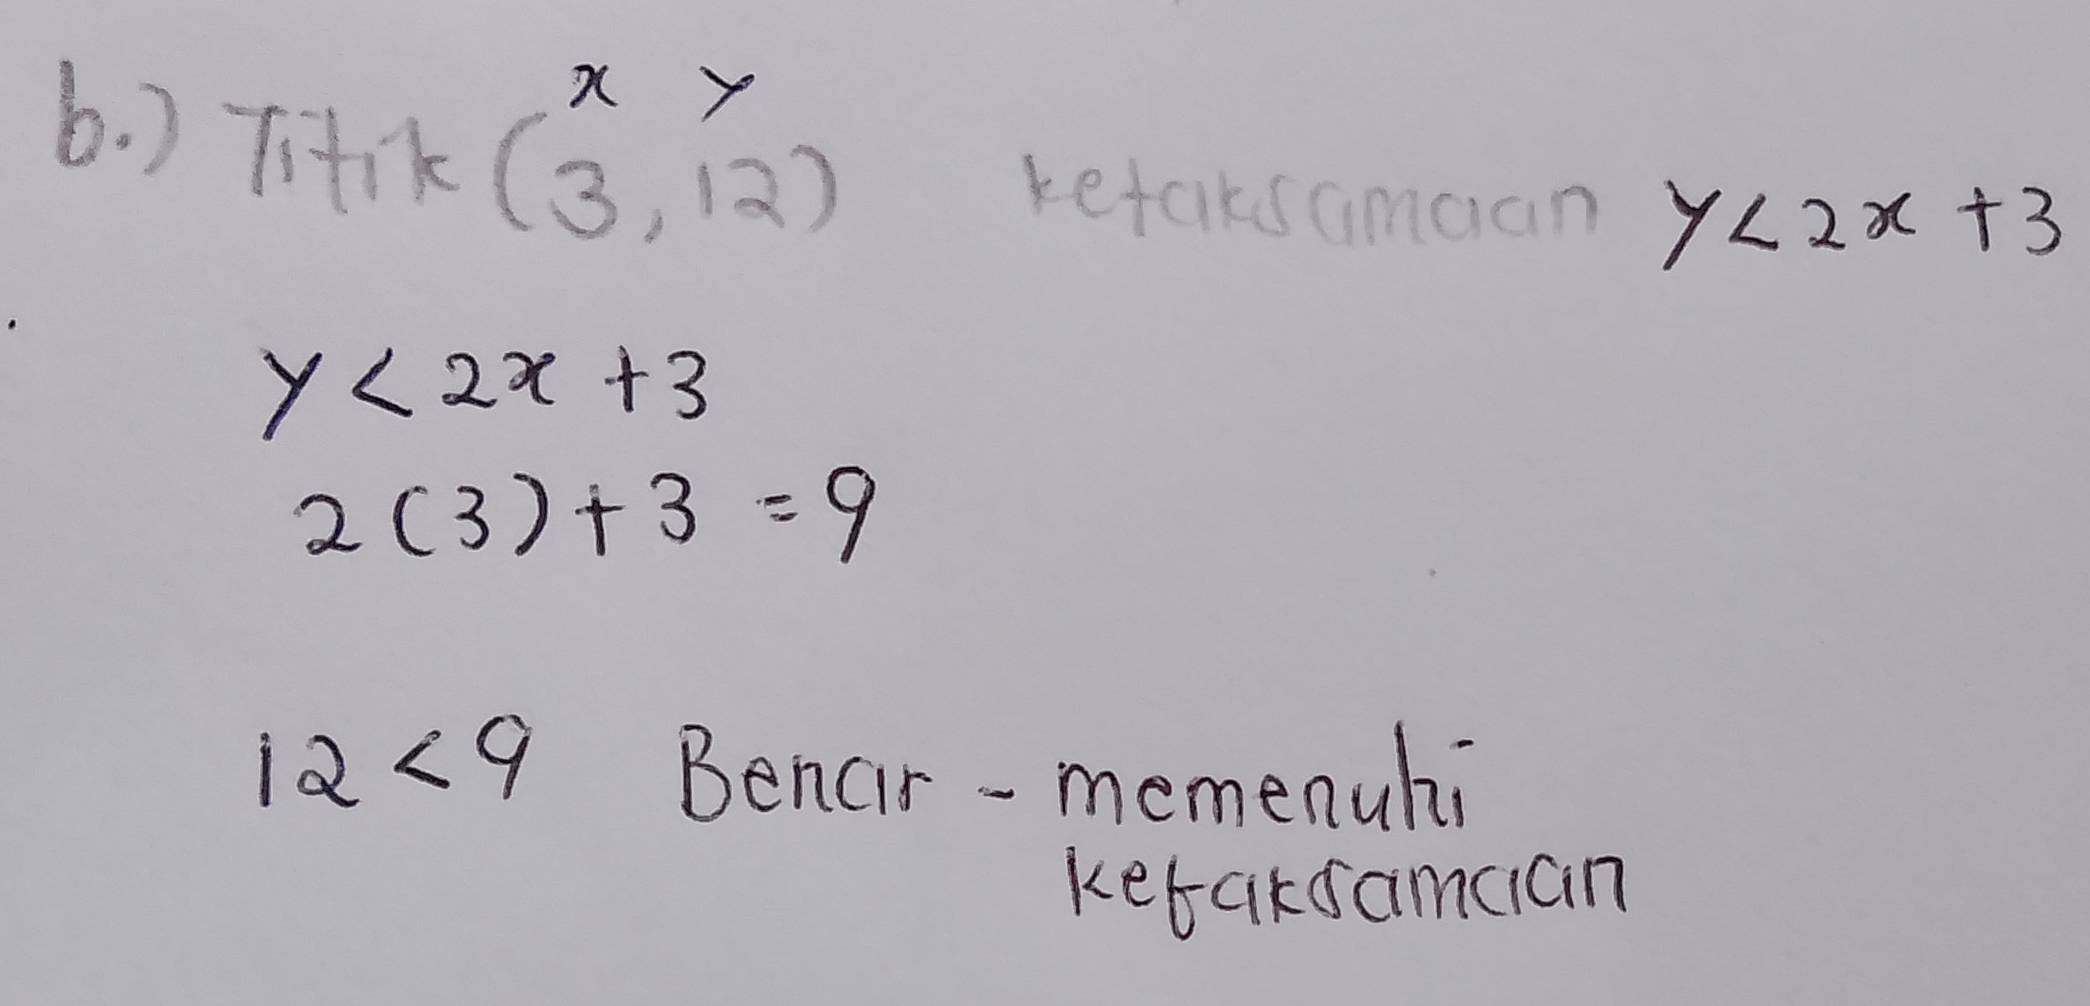 x y
b.) Titik (3, 12) ketaksamaan y < 2x + 3
y < 2x + 3
2(3) + 3 = 9
12 < 9 Benar - memenuhi
ketaksamaan